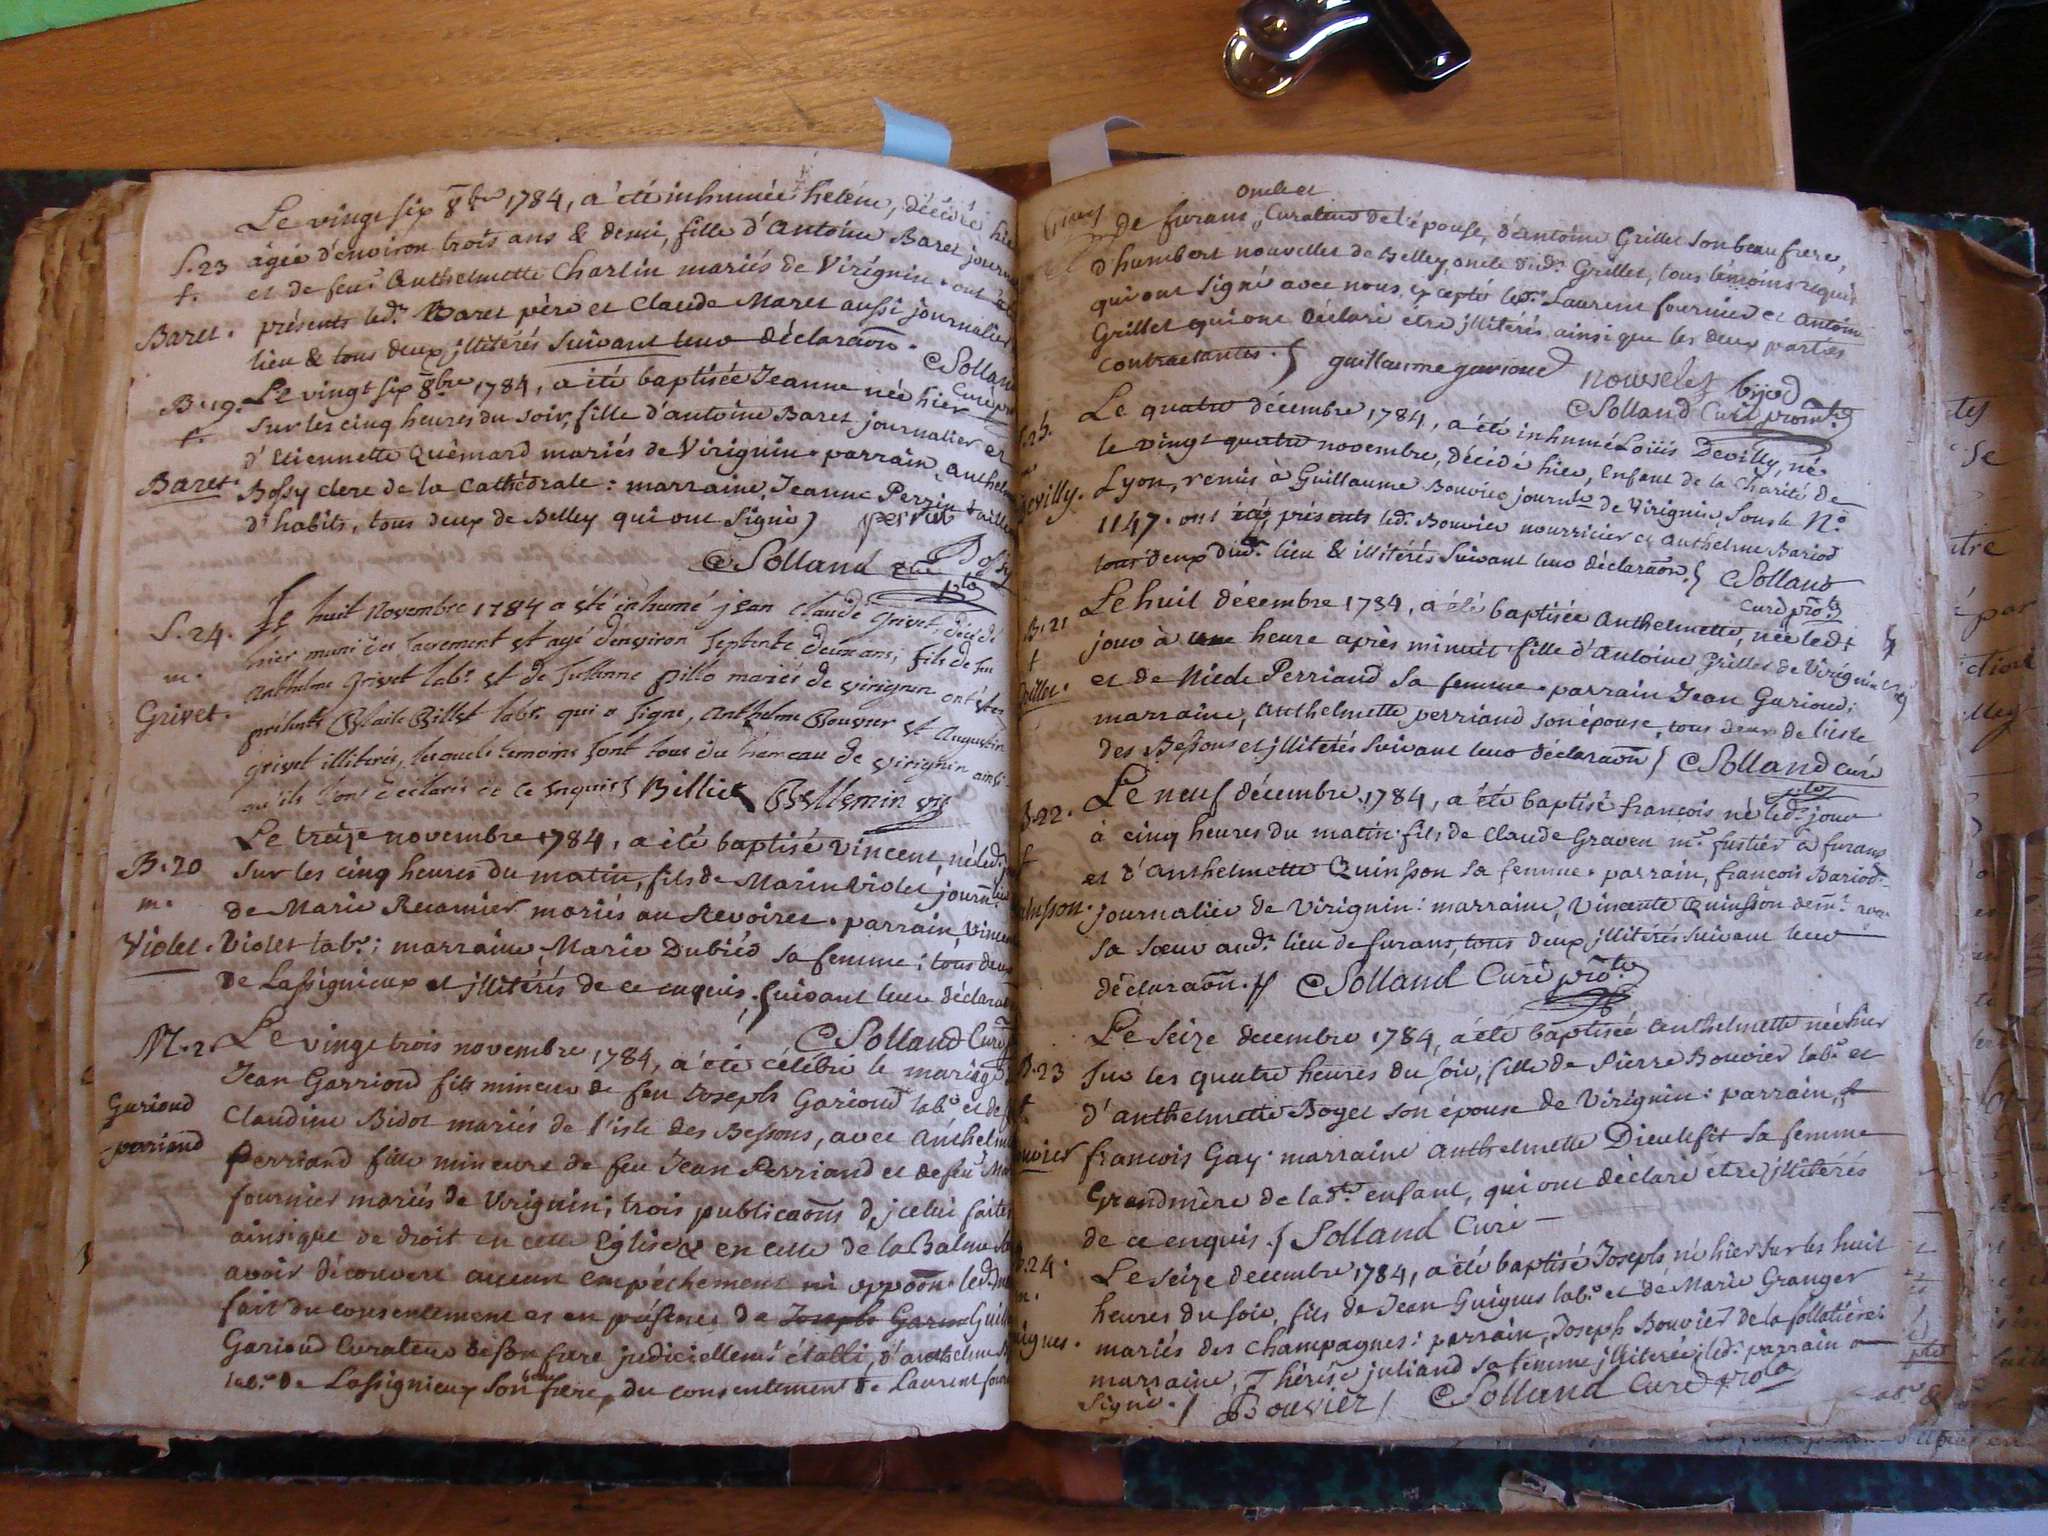 Le vingt six 8bre 1784, a été inhumée hélène, décédée hier
S.23 âgée d'environ trois ans & demi, fille d'Antoine Baret
f. et de feue Anthelmette Charlin mariés de Virignin. ont été
Baret. présents led. Baret père et Claude Maret aussi journalier
lieu & tous deux jllitérés suivant leur déclaraõn. Solland
Curé
B.19. Le vingt six 8bre 1784, a été baptisée Jeanne née hier
f. sur les cinq heures du soir, fille d'antoine Baret journalier et
d'Etiennette Quémard mariés de Virignin. parrain, anthelme
Baret. Bossy clerc de la Cathédrale: marraine, Jeanne Perrin
d'habits, tous deux de Belley qui ont signé
Solland
S.24. Le huit Novembre 1784 a été inhumé jean Claude Grivet, décédé
hier muni des sacrement et agé d'environ septente deux ans, fils de feu
m. anthelme Grivet labr. et de pillo mariés de virignin ont été
Grivet. présents Claude Billet labr. qui a signé, Anthelme Bouvier et Augustin
grivet illiterés, lesquels temoins sont tous du hameau de virignin ainsi
qu'ils l'ont déclarés de ce enquis Billiet Bellemin vic
Le treize novembre 1784, a été baptisé Vincent, né led.
B.20 sur les cinq heures du matin, fils de Marin Violet, journ.
m. de Marie Recamier mariés au Revoiret. parrain, Vincent
Violet. Violet labr.; marraine, Marie Dubiéd sa femme; tous deux
de Lassignieux et jllitérés de ce enquis, suivant leur déclaraõn
Solland Curé
M.2. Le vingt trois novembre 1784, a été célébré le mariage
Jean Garrioud fils mineur de feu Joseph Garioud labr. et de
Garioud Claudine Bidot mariés de l'isle des Bessons, avec Anthelmette
perriand Perriand fille mineure de feu Jean Perriand et de feue
fournier mariés de Virignin; trois publicaõns d'jcelui faites
ainsi que de droit en cette Eglise & en celle de la Balme
avoir découvert aucun empêchement ni oppõon. led.
fait du consentement et en présence de Joseph Gariou
Garioud Curateur de son frere judiciellemt. établi, d'anthelme
labr. de Lassignieux son beau frere, du consentement de Laurent
oncle et
de furans, Curateur de l'épouse, d'antoine Grillet son beau frere,
d'humbert nouvellet de Belley, oncle dud. Grillet, tous témoins requis
qui ont signé avec nous, excepté led. Laurent fournier et Antoine
Grillet qui ont déclaré etre jllitérés ainsi que les deux parties
contractantes. guillaume garioud nouvelet
Solland Curé
Le quatre décembre 1784, a été inhumé Loüis Devilly, né
le vingt quatre novembre, décédé hier, enfant de la Charité de
Devilly. Lyon, remis à Guillaume Bouvier journlr. de Virignin, sous le No.
1147. ont été présents led. Bouvier nourricier et Anthelme Bariod
tous deux dud. lieu & illitérés suivant leur déclaraõn. Solland
Curé
B.21 Le huit décembre 1784, a été baptisée Anthelmette, née led.
f jour à une heure après minuit fille d'Antoine Grillet de Virignin
Grillet. et de Niede Perriand sa femme. parrain Jean Garioud;
marraine, Anthelmette perriand son épouse, tous deux de l'isle
des Bessons et jllitérés suivant leur déclaraõn Solland curé
B.22. Le neuf décembre, 1784, a été baptisé françois né led. jour
à cinq heures du matin, fils de Claude Graven me. fustier à furans
et d'Anthelmette Quinsson sa femme. parrain, françois Bariod
Quinsson. journalier de Virignin: marraine, Vincente Quinsson
sa sœur aud. lieu de furans, tous deux jllitérés suivant leur
déclaraõn. Solland Curé
Le seize decembre 1784, a été baptisée Anthelmette née hier
B.23 sur les quatre heures du soir, fille de Pierre Bouvier labr. et
f. d'anthelmette Boyet son épouse de Virignin: parrain,
Bouvier françois Gay. marraine anthelmette Dieulefit sa femme
Grandmère de lade. enfant, qui ont déclaré être jllitérés
de ce enquis. Solland Curé
B.24. Le seize decembre 1784, a été baptisé Joseph, né hier sur les huit
m. heures du soir, fils de Jean Guigues labr. et de Marie Granger
Guigues. mariés des Champagnes: parrain, Joseph Bouvier de la sollatière:
marraine, Thérèse juliand sa femme jllitérée; led. parrain a
signé. Bouvier Solland Curé